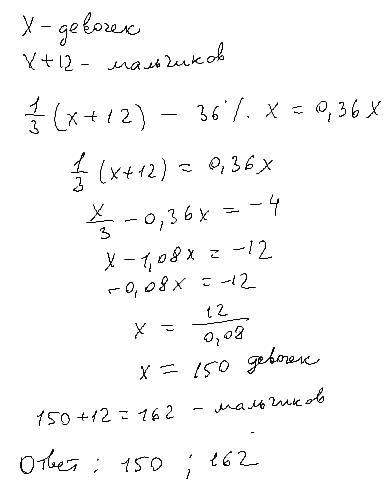 x - девочек
x+12 - мальчиков
1/3 (x+12) - 36%. x = 0,36x
1/3 (x+12) = 0,36x
x/3 - 0,36x = -4
x - 1,08x = -12
-0,08x = -12
x = 12/0,08
x = 150 девочек
150+12 = 162 - мальчиков
Ответ: 150 ; 162